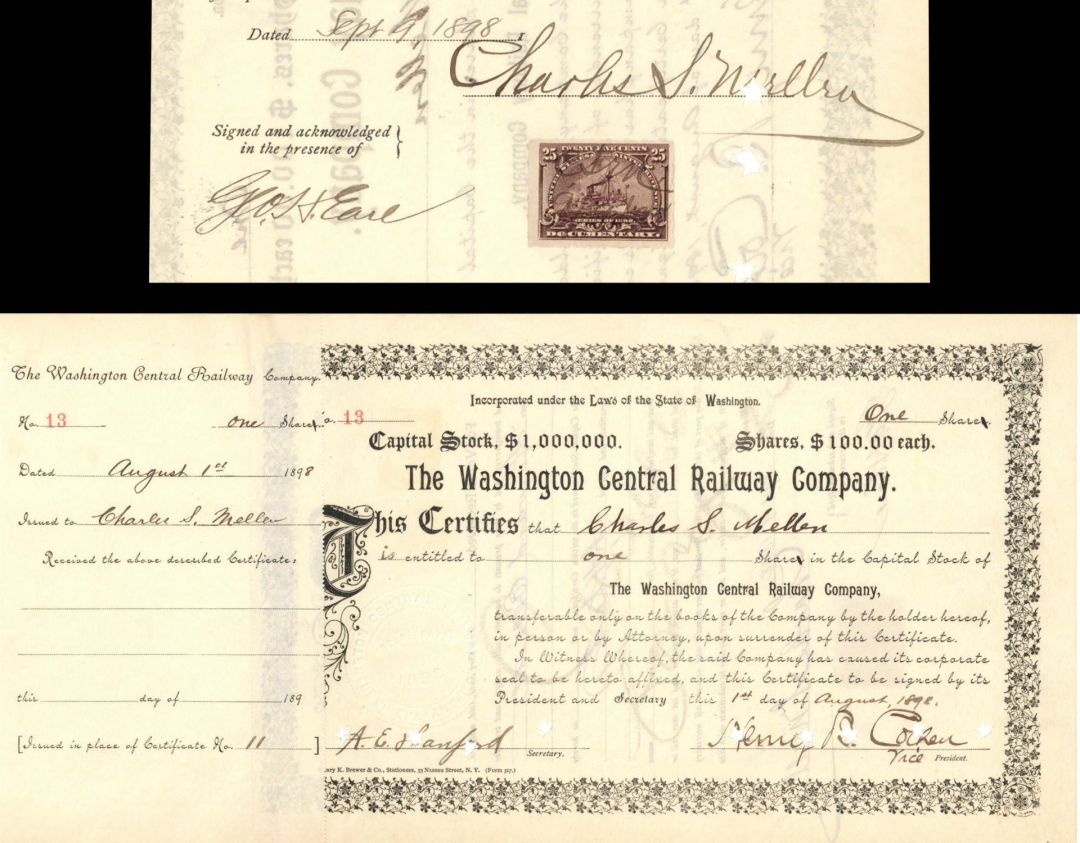 Dated Sept 9, 1898
Charles S. Mellen
Signed and acknowledged
in the presence of
Geo. H. Earl
25 TWENTY FIVE CENTS 25
DOCUMENTARY.
The Washington Central Railway Company.
No. 13 one Share
Dated August 1st 1898
Issued to Charles S. Mellen
Received the above described Certificate:
this day of 189
[Issued in place of Certificate No. 11 ]
Incorporated under the Laws of the State of Washington.
o. 13 One Share
Capital Stock, $1,000,000. Shares, $100.00 each.
The Washington Central Railway Company.
This Certifies that Charles S. Mellen
is entitled to one Share in the Capital Stock of
The Washington Central Railway Company,
transferable only on the books of the Company by the holder hereof,
in person or by Attorney, upon surrender of this Certificate.
In Witness Whereof, the said Company has caused its corporate
seal to be hereto affixed, and this Certificate to be signed by its
President and Secretary this 1st day of August, 1898.
A. E. Hanford Secretary.
Henry R. Vice President.
nry K. Brewer & Co., Stationers, 53 Nassau Street, N. Y. (Form 517.)